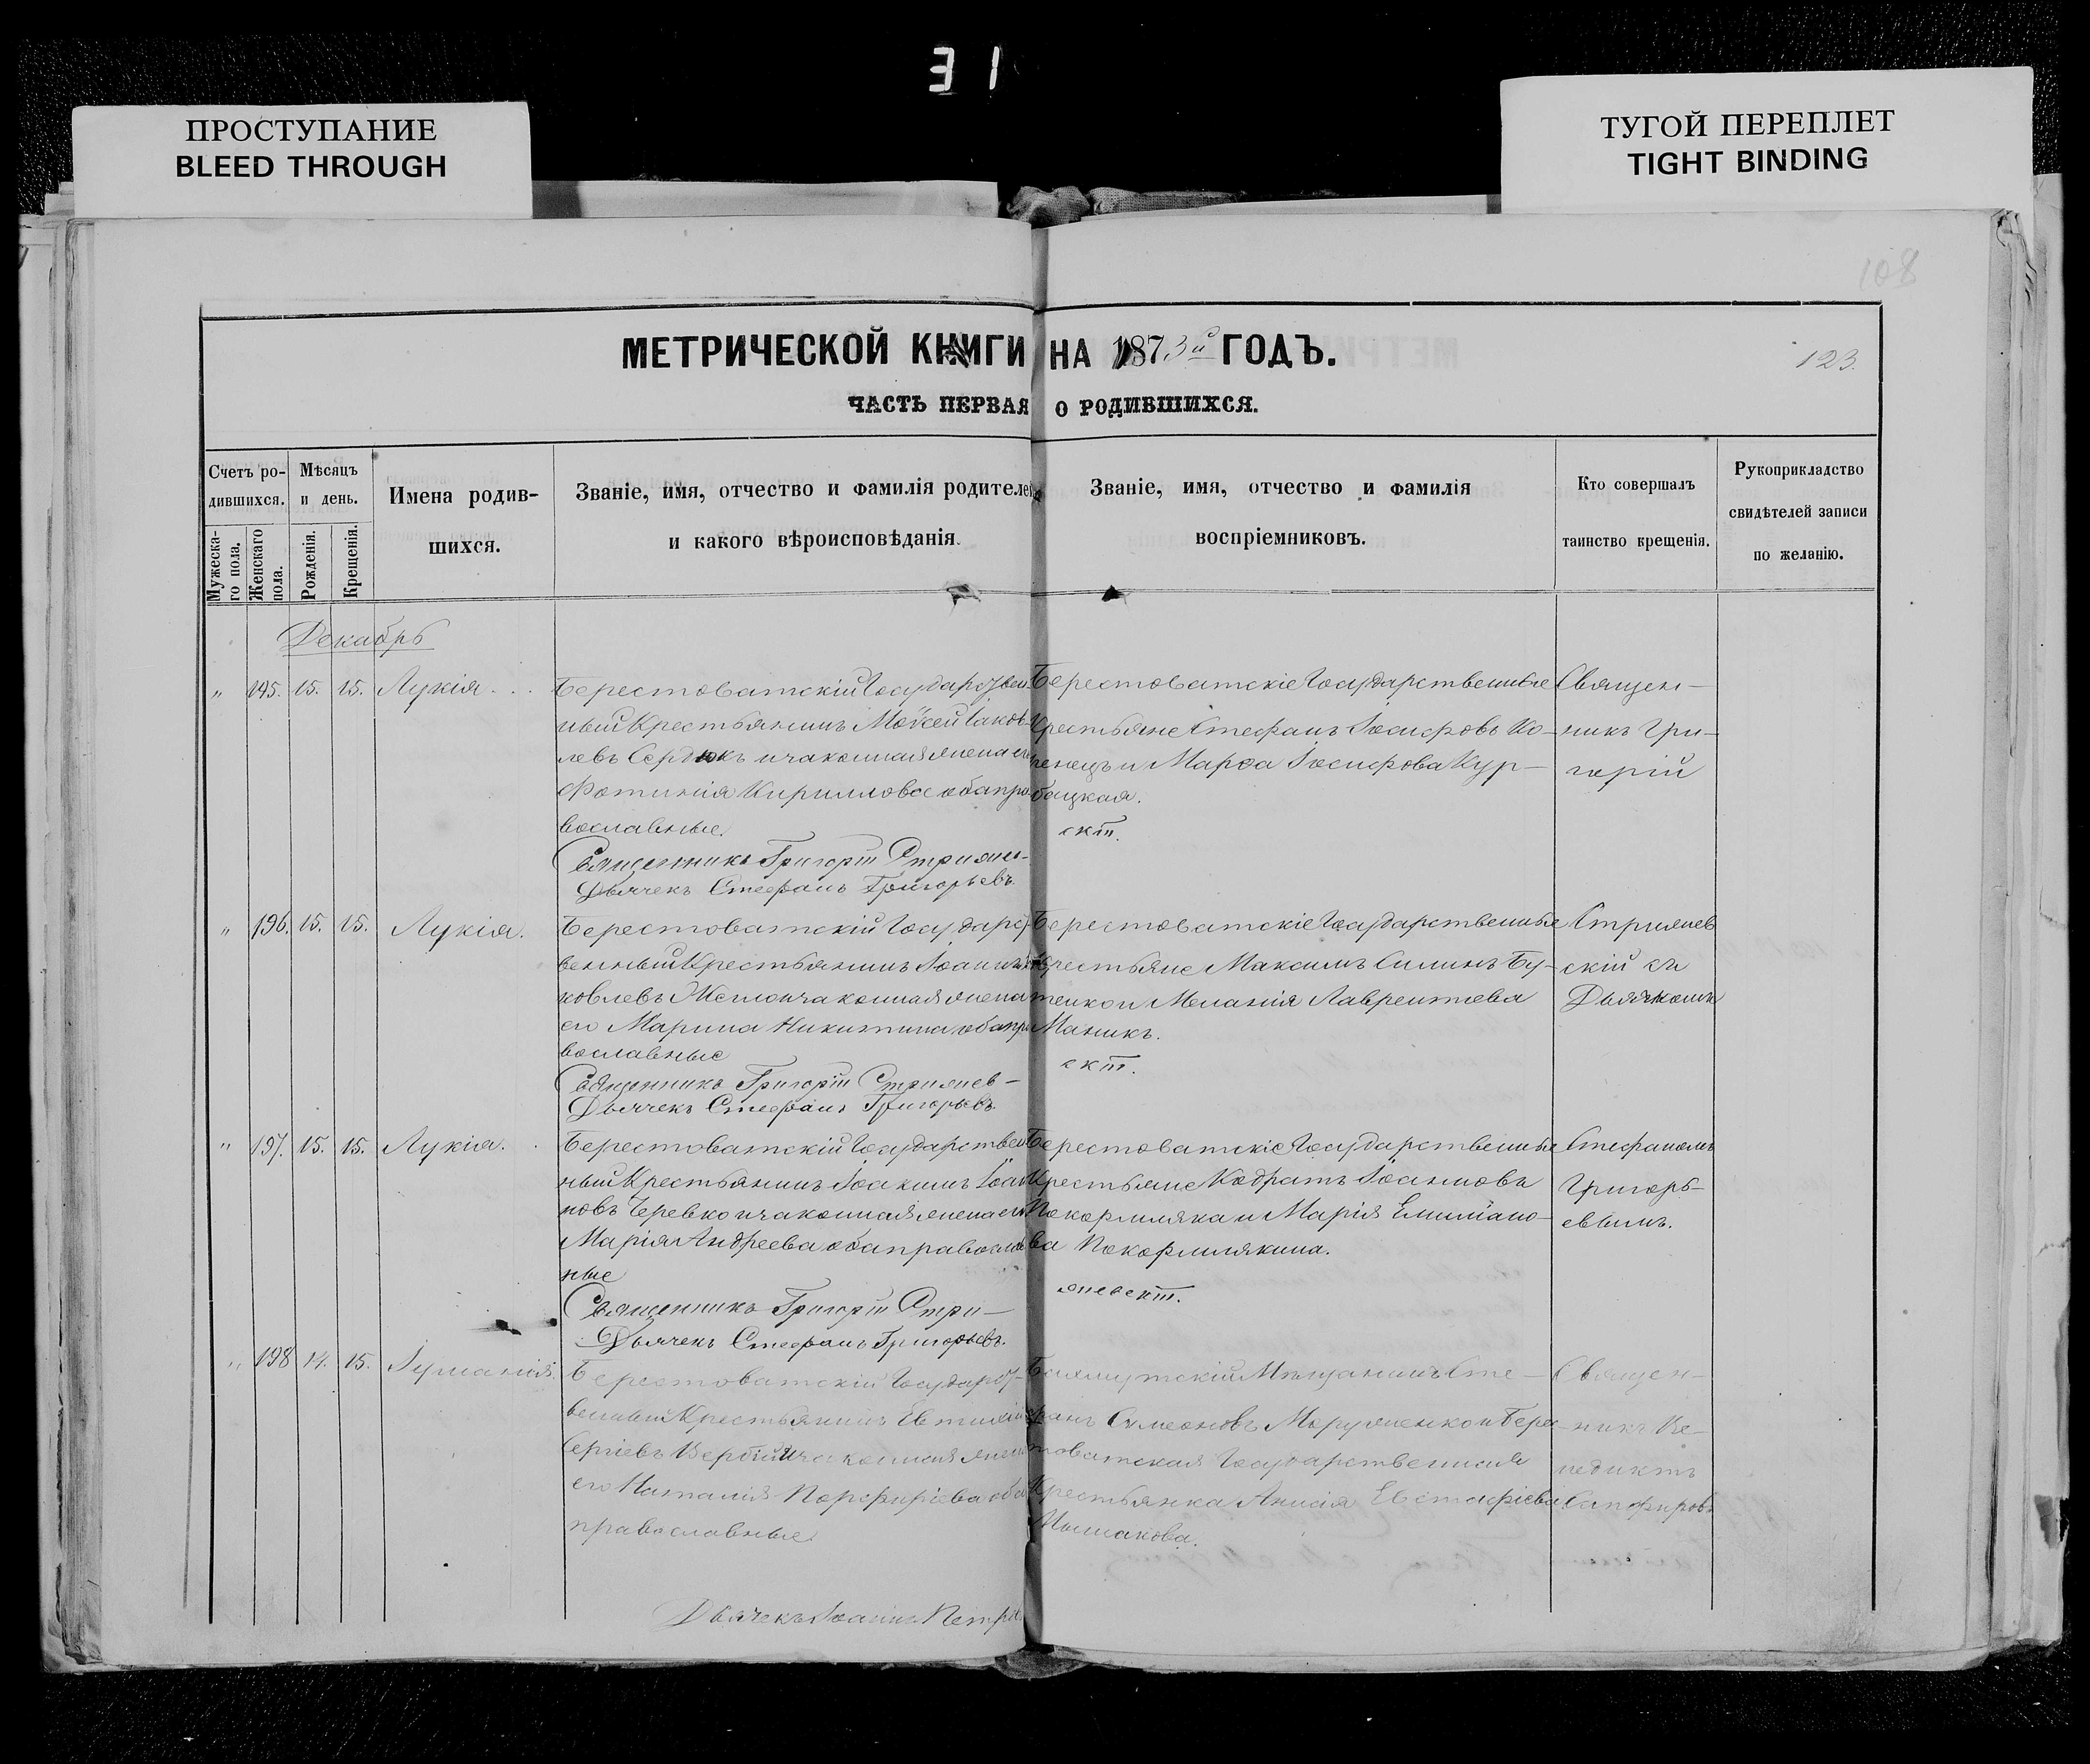 ПРОСТУПАНИЕ
BLEED THROUGH
ТУГОЙ ПЕРЕПЛЕТ
TIGHT BINDING
108
МЕТРИЧЕСКОЙ КНИГИ НА 1873й ГОДЪ.
123.
ЧАСТЬ ПЕРВАЯ О РОДИВШИХСЯ.
Счетъ ро-
дившихся.
Мужеска-
го пола.
Женскаго
пола.
Мѣсяцъ
и день.
Рожденія.
Крещенія.
Имена родив-
шихся.
Званіе, имя, отчество и фамилія родителей
и какого вѣроисповѣданія.
Званіе, имя, отчество и фамилія
воспріемниковъ.
Кто совершалъ
таинство крещенія.
Рукоприкладство
свидѣтелей записи
по желанію.
Декабрь
" 195. 15. 15. Лукія
Берестоватскій Государствен
ный Крестьянинъ Моѵсей Іаков
левъ Сердюкъ и законная жена его
Фотинія Кириллова оба пра
вославные.
Священникъ Григорій Стрижев
Дьячекъ Стефанъ Григорьевъ.
Берестоватскіе Государственные
Крестьяне Стефанъ Іосифовъ Ко-
ренецъ и Марѳа Іосифова Кур-
бацкая.
скій.
Священ-
никъ Гри-
горій
" 196. 15. 15. Лукія.
Берестоватскій Государст-
венный Крестьянинъ Іоаннъ
ковлевъ и законная жена
его Марина Никитина оба пра
вославные
Священникъ Григорій Стрижев-
Дьячекъ Стефанъ Григорьевъ.
Берестоватскіе Государственные
Крестьяне Максимъ Силинъ Бу-
тенко и Меланія Лаврентіева
Маникъ.
скій.
Стрижев
скій съ
Дьячкомъ
" 197. 15. 15. Лукія.
Берестоватскій Государствен
ный Крестьянинъ Іоакимъ Іоан
новъ Черевко и законная жена его
Марія Андреева оба православ
ные
Священникъ Григорій Стри-
Дьячекъ Стефанъ Григорьевъ.
Берестоватскіе Государственные
Крестьяне Кодратъ Іоанновъ
Покормляка и Марія Емиліано-
ва Покормлякина.
жевскій.
Стефаномъ
Григорь-
евымъ.
" 198 14. 15. Іуліанія.
Берестоватскій Государст-
венный Крестьянинъ Евтихій
Сергіевъ и законная жена
его Наталія Порфиріева оба
православные.
Дьячекъ Іоаннъ Петро
Бахмутскій Мѣщанинъ Сте-
фанъ Симеоновъ и Берес
товатская Государственная
Крестьянка Анисія Евстафіева
Священ-
никъ Ве-
недиктъ
Сапфировъ